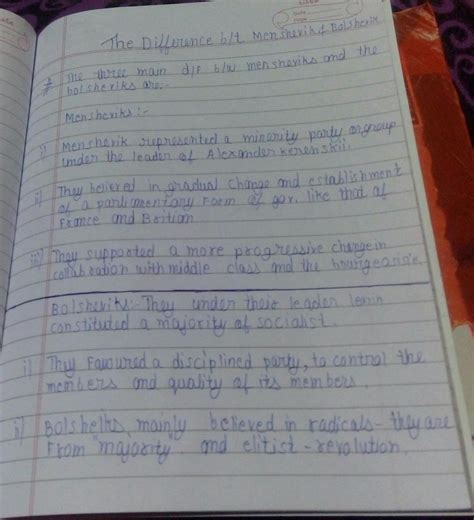 The Difference b/t Menshevik & Bolshevik
# The three main d/f b/w mensheviks and the
bolsheviks are.-
Mensheviks :-
i) Menshevik represented a minority party or group
under the leader of Alexander Kerenskii.
ii) They believed in gradual change and establishment
of a parlimentary Form of gov. like that of
France and Britian
iii) They supported a more progressive change in
collabration with middle class and the
Bolsheviks:- They under their leader Lenin
constituted a majority of socialist.
i) They Favoured a disciplined party, to control the
members and quality of its members.
ii) mainly believed in radicals - they are
From "majority" and elitist - revolution.